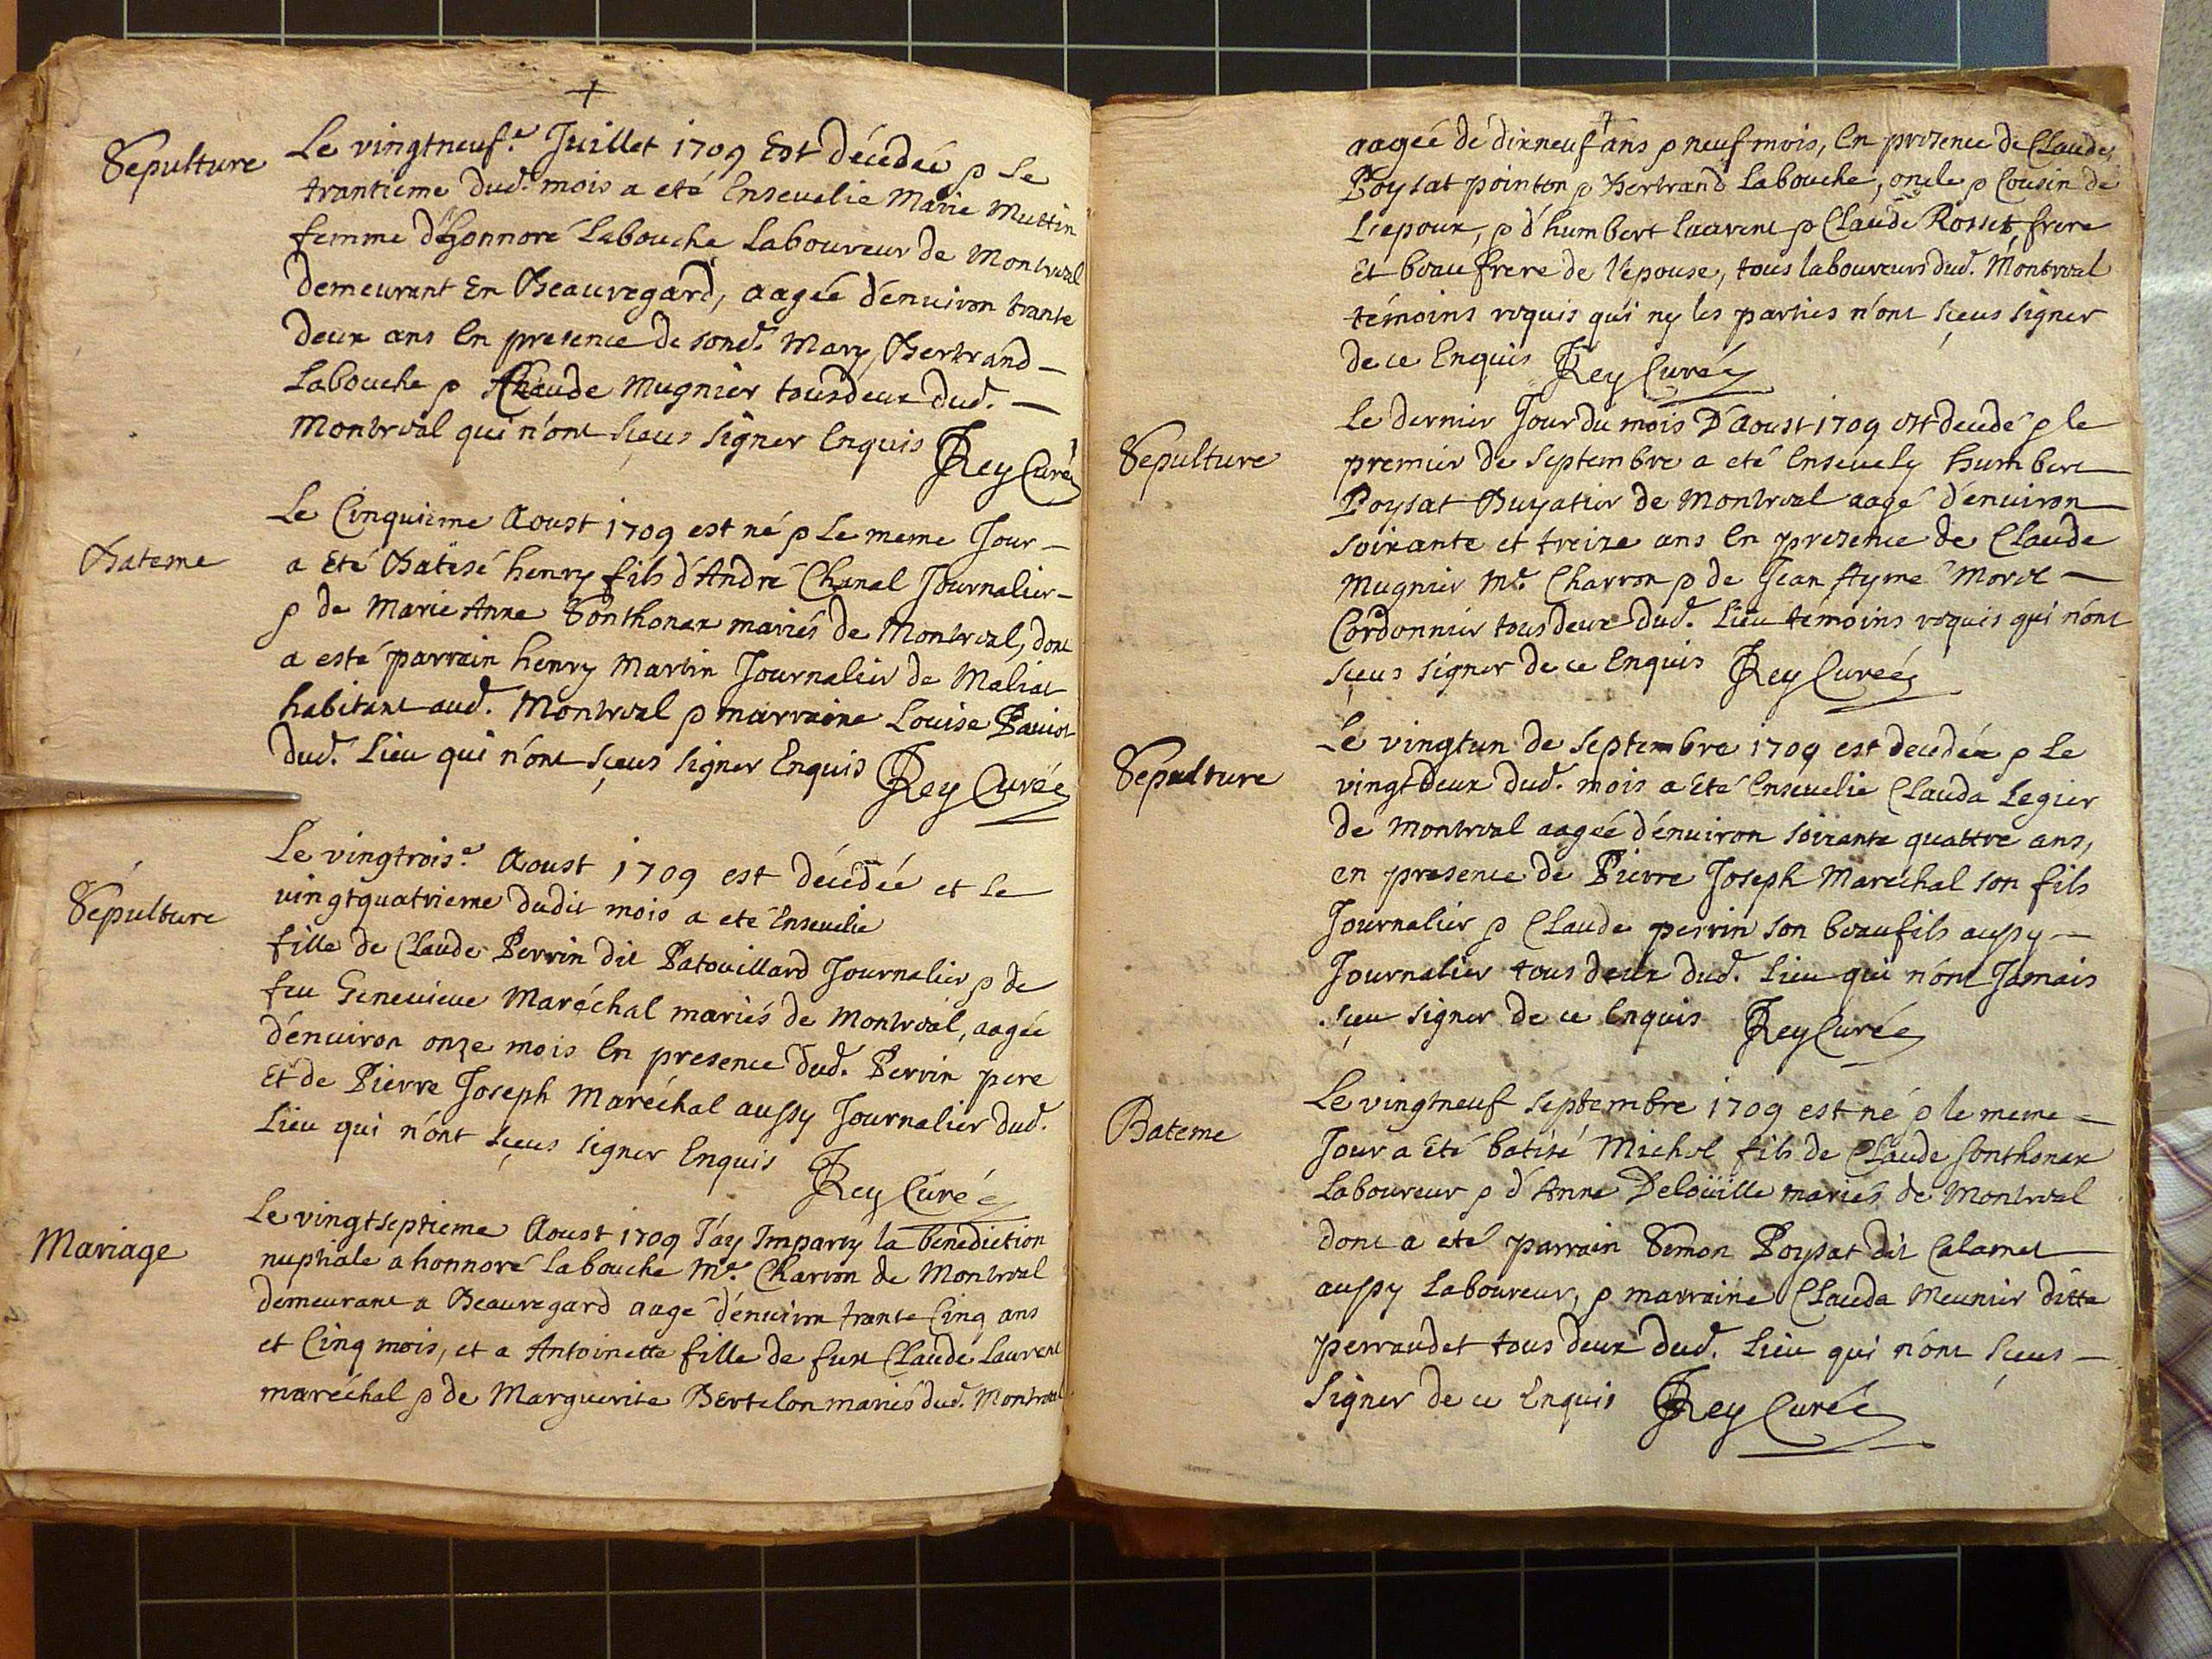 +
Sepulture
Le vingtneuf.e Juillet 1709 Est décedée & Le
trantieme dud. mois a eté Ensevelie Marie Muttin
femme d'honnoré Labouche Laboureur de Montreal
demeurant En Beauregard, aagée d'environ trante
deux ans En presence de sond. Mary, Bertrand
Labouche & Claude Mugnier tousdeux dud.
Montreal qui n'ont sçeus signer Enquis Rey Curé
Bateme
Le Cinquieme Aoust 1709 est né & Le meme Jour
a Eté Batisé henry fils d'André Chanal Journalier
& de Marie Anne Sonthonax mariés de Montreal, dont
a esté parrain henry Martin Journalier de Maliat
habitant aud. Montreal & marraine Louise Paviot
dud. Lieu qui n'ont sçeus signer Enquis Rey Curé
Sépulture
Le vingtrois.e Aoust 1709 est décédée et Le
vingtquatrieme dudit mois a eté Ensevelie
fille de Claude Perrin dit Patouillard Journalier & de
feu Genevieve Maréchal mariés de Montreal, aagée
d'environ onze mois En presence dud. Perrin pere
Et de Pierre Joseph Maréchal aussy Journalier dud.
Lieu qui n'ont sçeus signer Enquis Rey Curé
Mariage
Le vingtseptieme Aoust 1709 J'ay Imparty la benediction
nuptiale a honnoré Labouche M.e Charron de Montreal
demeurant a Beauregard aagé d'environ trante Cinq ans
et Cinq mois, et a Antoinette fille de feux Claude Laurent
maréchal & de Marguerite Bertelon mariés dud. Montreal
aagée de dixneuf ans & neuf mois, En presence de Claude
Poysat pointon & Bertrand Labouche, oncle & Cousin de
L'epoux, & d'humbert Laurent & Claude Rosset, frere
Et beaufrere de l'epouse, tous laboureurs dud. Montreal
témoins requis qui ny les parties n'ont sçeus signer
de ce Enquis Rey Curé
Sepulture
Le dernier Jour du mois D'Aoust 1709 est decedé & le
premier de Septembre a eté Ensevely humbert
Poysat Buyatier de Montreal aagé d'environ
soixante et treize ans En presence de Claude
Mugnier M.e Charron & de Jean Ayme Morel
Cordonnier tous deux dud. Lieu témoins requis qui n'ont
sçeus signer de ce Enquis Rey Curé
Sepulture
Le vingtun de Septembre 1709 est decedée & Le
vingtdeux dud. mois a Eté Ensevelie Clauda Legier
de Montreal aagée d'environ soixante quattre ans,
en presence de Pierre Joseph Maréchal son fils
Journalier & Claude perrin son beaufils aussy
Journalier tous deux dud. Lieu qui n'ont Jamais
sçeu signer de ce Enquis Rey Curé
Bateme
Le vingtneuf Septembre 1709 est né & le meme
Jour a Eté batisé Michel fils de Claude Sonthonax
Laboureur & d'Anne Deloüille mariés de Montreal
dont a eté parrain Simon Poysat dit Calamet
aussy Laboureur, & marraine Clauda Meunier ditte
perraudet tous deux dud. Lieu qui n'ont sçeus
signer de ce Enquis Rey Curé